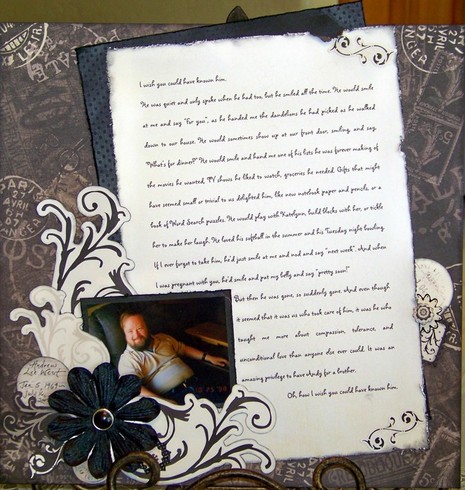 I wish you could have known him.
He was quiet and only spoke when he had too, but he smiled all the time. He would smile
at me and say "For you", as he handed me the dandelions he had picked as he walked
down to our house. He would sometimes show up at our front door, smiling, and say,
"What's for dinner?" He would smile and hand me one of his lists he was forever making of
the movies he wanted, TV shows he liked to watch, groceries he needed. Gifts that might
have seemed small or trivial to us delighted him, like new notebook paper and pencils, or a
book of Word Search puzzles. He would play with Katelynn, build blocks with her, or tickle
her to make her laugh. He loved his softball in the summer and his Tuesday night bowling.
If I ever forgot to take him, he'd just smile at me and nod and say "next week". And when
I was pregnant with you, he'd smile and pat my belly and say "pretty soon!"
But then he was gone, so suddenly gone. And even though
it seemed that it was us who took care of him, it was he who
taught me more about compassion, tolerance, and
unconditional love than anyone else ever could. It was an
amazing privilege to have Andy for a brother.
Oh, how I wish you could have known him.
Andrew
Lee West
Jan. 5, 1969